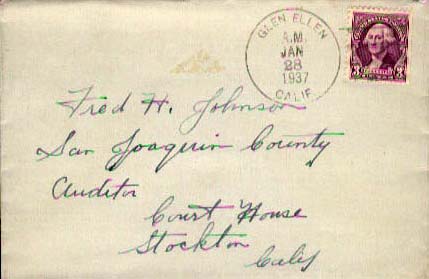 GLEN ELLEN
A.M.
JAN
28
1937
CALIF.
3 3
Fred H. Johnson
San Joaquin County
Auditor
Court House
Stockton
Calif